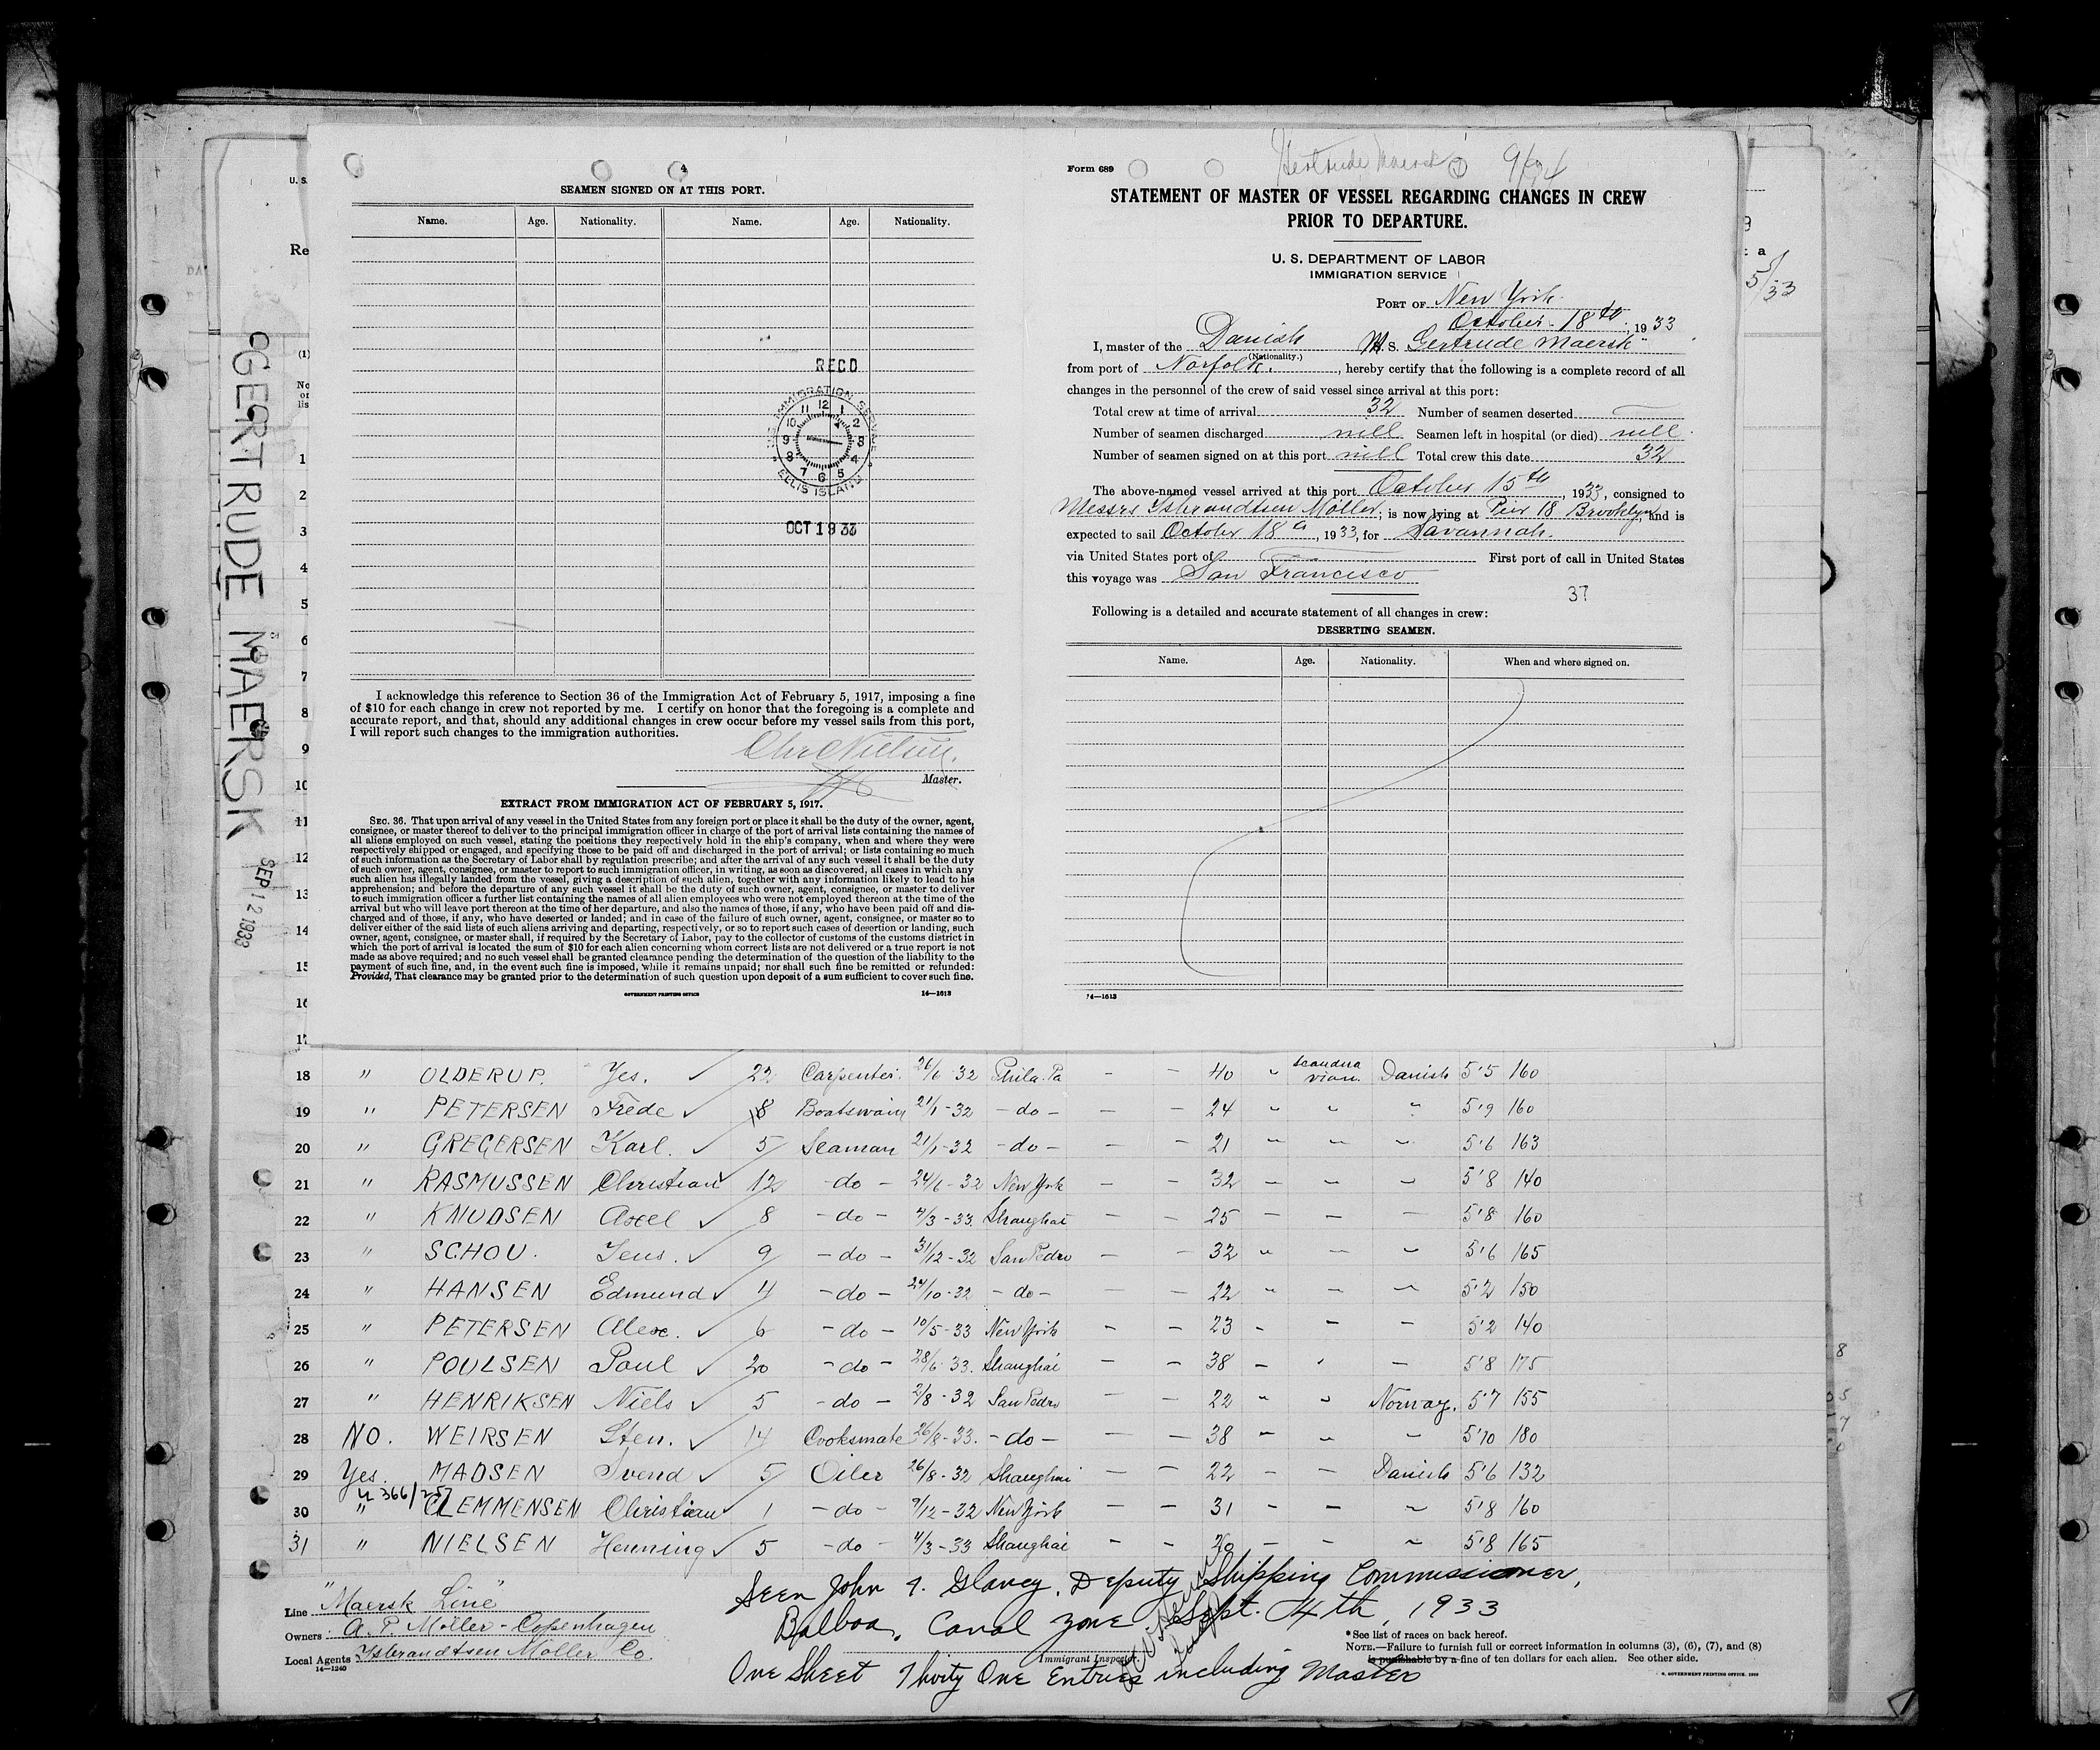 4
SEAMEN SIGNED ON AT THIS PORT.
Name. Age. Nationality. Name. Age. Nationality.
REC'D
IMMIGRATION SERVICE
12 1 2 3 4 5 6 7 8 9 10 11
ELLIS ISLAND
OCT 19 33
I acknowledge this reference to Section 36 of the Immigration Act of February 5, 1917, imposing a fine
of $10 for each change in crew not reported by me. I certify on honor that the foregoing is a complete and
accurate report, and that, should any additional changes in crew occur before my vessel sails from this port,
I will report such changes to the immigration authorities.
Chr Nielsen.
Master.
EXTRACT FROM IMMIGRATION ACT OF FEBRUARY 5, 1917.
SEC. 36. That upon arrival of any vessel in the United States from any foreign port or place it shall be the duty of the owner, agent,
consignee, or master thereof to deliver to the principal immigration officer in charge of the port of arrival lists containing the names of
all aliens employed on such vessel, stating the positions they respectively hold in the ship's company, when and where they were
respectively shipped or engaged, and specifying those to be paid off and discharged in the port of arrival; or lists containing so much
of such information as the Secretary of Labor shall by regulation prescribe; and after the arrival of any such vessel it shall be the duty
of such owner, agent, consignee, or master to report to such immigration officer, in writing, as soon as discovered, all cases in which any
such alien has illegally landed from the vessel, giving a description of such alien, together with any information likely to lead to his
apprehension; and before the departure of any such vessel it shall be the duty of such owner, agent, consignee, or master to deliver
to such immigration officer a further list containing the names of all alien employees who were not employed thereon at the time of the
arrival but who will leave port thereon at the time of her departure, and also the names of those, if any, who have been paid off and dis-
charged and of those, if any, who have deserted or landed; and in case of the failure of such owner, agent, consignee, or master so to
deliver either of the said lists of such aliens arriving and departing, respectively, or so to report such cases of desertion or landing, such
owner, agent, consignee, or master shall, if required by the Secretary of Labor, pay to the collector of customs of the customs district in
which the port of arrival is located the sum of $10 for each alien concerning whom correct lists are not delivered or a true report is not
made as above required; and no such vessel shall be granted clearance pending the determination of the question of the liability to the
payment of such fine, and, in the event such fine is imposed, while it remains unpaid; nor shall such fine be remitted or refunded:
Provided, That clearance may be granted prior to the determination of such question upon deposit of a sum sufficient to cover such fine.
GOVERNMENT PRINTING OFFICE 14—1613
Form 689
Gertrude Maersk
STATEMENT OF MASTER OF VESSEL REGARDING CHANGES IN CREW
PRIOR TO DEPARTURE.
U. S. DEPARTMENT OF LABOR
IMMIGRATION SERVICE
PORT OF New York.
October - 18th, 1933
I, master of the Danish M. S. Gertrude Maersk"
(Nationality.)
from port of Norfolk., hereby certify that the following is a complete record of all
changes in the personnel of the crew of said vessel since arrival at this port:
Total crew at time of arrival 32 Number of seamen deserted —
Number of seamen discharged nill Seamen left in hospital (or died) nill
Number of seamen signed on at this port nill Total crew this date 32
The above-named vessel arrived at this port October 15th, 1933, consigned to
Messrs Isbrandtsen Möller; is now lying at Pier 18 Brooklyn, and is
expected to sail October 18th, 1933, for Savannah.
via United States port of — First port of call in United States
this voyage was San Francisco
37
Following is a detailed and accurate statement of all changes in crew:
DESERTING SEAMEN.
Name. Age. Nationality. When and where signed on.
14—1613
U. S.
Re
(1)
No
or
lis
1
2
3
4
5
6
7
8
9
10
11
12
13
14
15
16
17
GERTRUDE MAERSK
SEP 12 1933
5/33
18 " OLDERUP. Yes. ✓ 22 Carpenter. 26/6 -32 Phila. Pa - - 40 " Scandna vian. Danish 5'5 160
19 " PETERSEN Frede ✓ 18 Boatswain 21/1 -32 - do - - - 24 " " " 5'9 160
20 " GREGERSEN Karl. ✓ 5 Seaman 21/1 -32 - do - - - 21 " " " 5'6 163
21 " RASMUSSEN Christian ✓ 12 - do - 24/6 -32 New York - - 32 " " " 5'8 140
22 " KNUDSEN Axel ✓ 8 - do - 4/3 -33. Shanghai - - 25 - - - 5'8 160
23 " SCHOU. Jens. ✓ 9 - do - 31/12 -32 San Pedro - - 32 " - " 5'6 165
24 " HANSEN Edmund ✓ 4 - do - 24/10 -32 - do - 22 " - " 5'2 150
25 " PETERSEN Alex. ✓ 6 - do - 10/5 -33 New York - - 23 - " - 5'2 140
26 " POULSEN Poul ✓ 20 - do - 28/6 33. Shanghai - - 38 - " - 5'8 175
27 " HENRIKSEN Niels ✓ 5 - do - 2/8 -32 San Pedro - - 22 " " Norway. 5'7 155
28 NO. WEIRSEN Sten. ✓ 14 Cooksmate 26/8 -33. - do - - - 38 " " " 5'10 180
29 Yes. MADSEN Svend ✓ 5 Oiler 26/8 -32 Shanghai - - 22 - - Danish 5'6 132
30 " CLEMMENSEN Christian ✓ 1 - do - 9/12 -32 New York - - 31 - - " 5'8 160
31 " NIELSEN Henning ✓ 5 - do - 4/3 -33 Shanghai - - 20 - - " 5'8 165
Line "Maersk Line"
Owners A. P. Möller - Copenhagen
Local Agents Isbrandtsen Möller Co.
14—1240
Seen John Glancy, Deputy Shipping Commissioner,
Balboa, Canal Zone Sept. 4th, 1933
Immigrant Inspector.
One Sheet Thirty One Entries including Master
*See list of races on back hereof.
NOTE.—Failure to furnish full or correct information in columns (3), (6), (7), and (8)
is punishable by a fine of ten dollars for each alien. See other side.